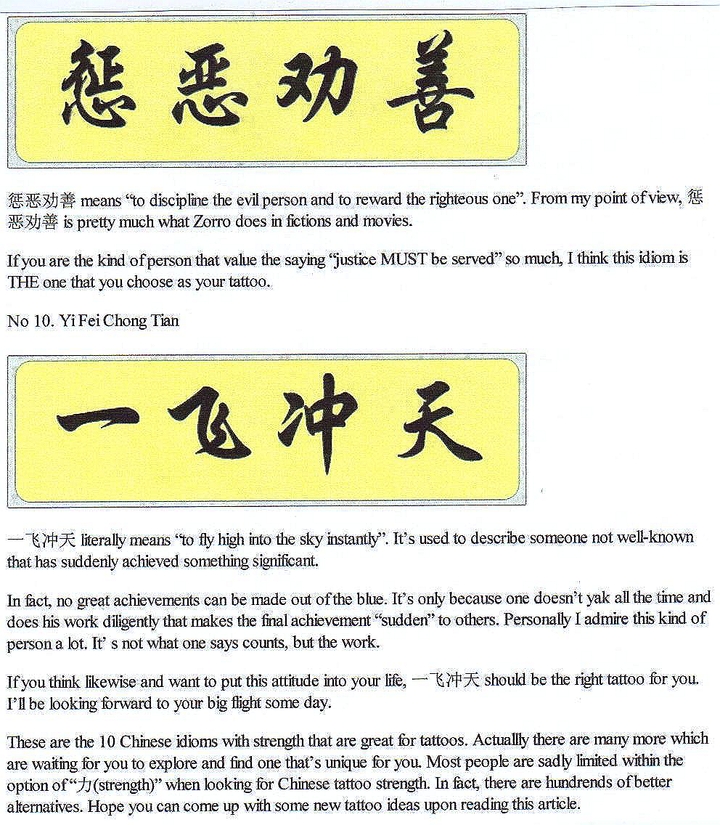 惩恶劝善
惩恶劝善 means “to discipline the evil person and to reward the righteous one”. From my point of view, 惩
恶劝善 is pretty much what Zorro does in fictions and movies.
If you are the kind of person that value the saying “justice MUST be served” so much, I think this idiom is
THE one that you choose as your tattoo.
No 10. Yi Fei Chong Tian
一飞冲天
一飞冲天 literally means “to fly high into the sky instantly”. It’s used to describe someone not well-known
that has suddenly achieved something significant.
In fact, no great achievements can be made out of the blue. It’s only because one doesn’t yak all the time and
does his work diligently that makes the final achievement “sudden” to others. Personally I admire this kind of
person a lot. It’ s not what one says counts, but the work.
If you think likewise and want to put this attitude into your life, 一飞冲天 should be the right tattoo for you.
I’ll be looking forward to your big flight some day.
These are the 10 Chinese idioms with strength that are great for tattoos. Actuallly there are many more which
are waiting for you to explore and find one that’s unique for you. Most people are sadly limited within the
option of “力(strength)” when looking for Chinese tattoo strength. In fact, there are hundrends of better
alternatives. Hope you can come up with some new tattoo ideas upon reading this article.